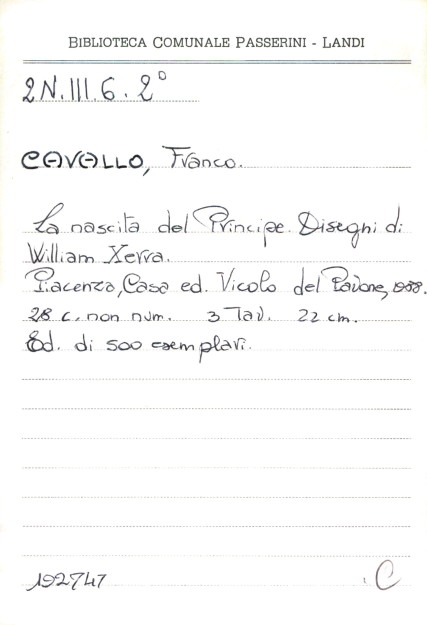 BIBLIOTECA COMUNALE PASSERINI - LANDI
2N.III.6.2°
CAVALLO, Franco.
La nascita del Principe. Disegni di
William Xerra.
Piacenza, Casa ed. Vicolo del Pavone, 1988.
28 c. non num. 3 Tav. 22 cm.
Ed. di 500 esemplari.
192747
C